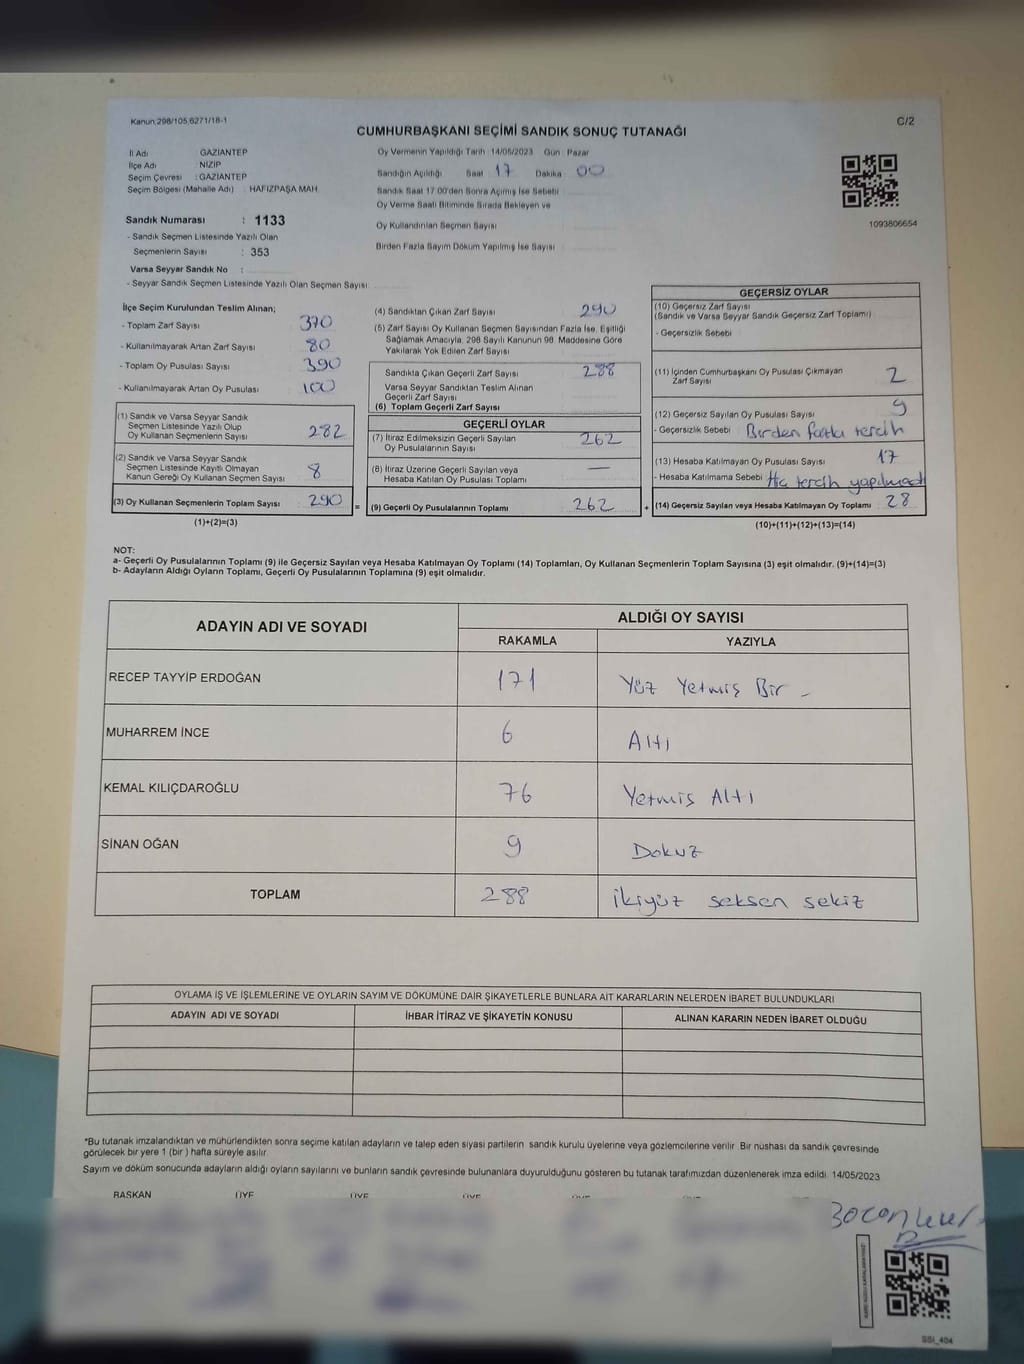 Kanun,298/105,6271/18-1
C/2
CUMHURBAŞKANI SEÇİMİ SANDIK SONUÇ TUTANAĞI
İl Adı GAZIANTEP
İlçe Adı NİZİP
Seçim Çevresi : GAZIANTEP
Seçim Bölgesi (Mahalle Adı) : HAFIZPAŞA MAH.
Sandık Numarası : 1133
- Sandık Seçmen Listesinde Yazılı Olan
Seçmenlerin Sayısı : 353
Varsa Seyyar Sandık No :
- Seyyar Sandık Seçmen Listesinde Yazılı Olan Seçmen Sayısı:
Oy Vermenin Yapıldığı Tarih 14/05/2023 Gün Pazar
Sandığın Açıldığı Saat 17 Dakika 00
Sandık Saat 17.00'den Sonra Açılmış İse Sebebi
Oy Verme Saati Bitiminde Sırada Bekleyen ve
Oy Kullandırılan Seçmen Sayısı
Birden Fazla Sayım Döküm Yapılmış İse Sayısı
1093806654
İlçe Seçim Kurulundan Teslim Alınan;
- Toplam Zarf Sayısı 370
- Kullanılmayarak Artan Zarf Sayısı 80
- Toplam Oy Pusulası Sayısı 390
- Kullanılmayarak Artan Oy Pusulası 100
(1) Sandık ve Varsa Seyyar Sandık
Seçmen Listesinde Yazılı Olup
Oy Kullanan Seçmenlerin Sayısı 282
(2) Sandık ve Varsa Seyyar Sandık
Seçmen Listesinde Kayıtlı Olmayan
Kanun Gereği Oy Kullanan Seçmen Sayısı 8
(3) Oy Kullanan Seçmenlerin Toplam Sayısı 290 =
(1)+(2)=(3)
(4) Sandıktan Çıkan Zarf Sayısı 290
(5) Zarf Sayısı Oy Kullanan Seçmen Sayısından Fazla İse, Eşitliği
Sağlamak Amacıyla, 298 Sayılı Kanunun 98. Maddesine Göre
Yakılarak Yok Edilen Zarf Sayısı
Sandıkta Çıkan Geçerli Zarf Sayısı 288
Varsa Seyyar Sandıktan Teslim Alınan
Geçerli Zarf Sayısı
(6) Toplam Geçerli Zarf Sayısı
GEÇERLİ OYLAR
(7) İtiraz Edilmeksizin Geçerli Sayılan
Oy Pusulalarının Sayısı 262
(8) İtiraz Üzerine Geçerli Sayılan veya
Hesaba Katılan Oy Pusulası Toplamı —
(9) Geçerli Oy Pusulalarının Toplamı 262 +
GEÇERSİZ OYLAR
(10) Geçersiz Zarf Sayısı
(Sandık ve Varsa Seyyar Sandık Geçersiz Zarf Toplamı)
- Geçersizlik Sebebi
(11) İçinden Cumhurbaşkanı Oy Pusulası Çıkmayan
Zarf Sayısı 2
(12) Geçersiz Sayılan Oy Pusulası Sayısı 9
- Geçersizlik Sebebi Birden fazla tercih
(13) Hesaba Katılmayan Oy Pusulası Sayısı 17
- Hesaba Katılmama Sebebi Hiç tercih yapılmadı
(14) Geçersiz Sayılan veya Hesaba Katılmayan Oy Toplamı 28
(10)+(11)+(12)+(13)=(14)
NOT:
a- Geçerli Oy Pusulalarının Toplamı (9) ile Geçersiz Sayılan veya Hesaba Katılmayan Oy Toplamı (14) Toplamları, Oy Kullanan Seçmenlerin Toplam Sayısına (3) eşit olmalıdır. (9)+(14)=(3)
b- Adayların Aldığı Oyların Toplamı, Geçerli Oy Pusulalarının Toplamına (9) eşit olmalıdır.
ADAYIN ADI VE SOYADI
ALDIĞI OY SAYISI
RAKAMLA YAZIYLA
RECEP TAYYİP ERDOĞAN 171 Yüz Yetmiş Bir -
MUHARREM İNCE 6 Altı
KEMAL KILIÇDAROĞLU 76 Yetmiş Altı
SİNAN OĞAN 9 Dokuz
TOPLAM 288 İkiyüz seksen sekiz
OYLAMA İŞ VE İŞLEMLERİNE VE OYLARIN SAYIM VE DÖKÜMÜNE DAİR ŞİKAYETLERLE BUNLARA AİT KARARLARIN NELERDEN İBARET BULUNDUKLARI
ADAYIN ADI VE SOYADI İHBAR İTİRAZ VE ŞİKAYETİN KONUSU ALINAN KARARIN NEDEN İBARET OLDUĞU
*Bu tutanak imzalandıktan ve mühürlendikten sonra seçime katılan adayların ve talep eden siyasi partilerin sandık kurulu üyelerine veya gözlemcilerine verilir. Bir nüshası da sandık çevresinde
görülecek bir yere 1 (bir ) hafta süreyle asılır.
Sayım ve döküm sonucunda adayların aldığı oyların sayılarını ve bunların sandık çevresinde bulunanlara duyurulduğunu gösteren bu tutanak tarafımızdan düzenlenerek imza edildi. 14/05/2023
BAŞKAN ÜYE ÜYE ÜYE ÜYE ÜYE
SSI_404